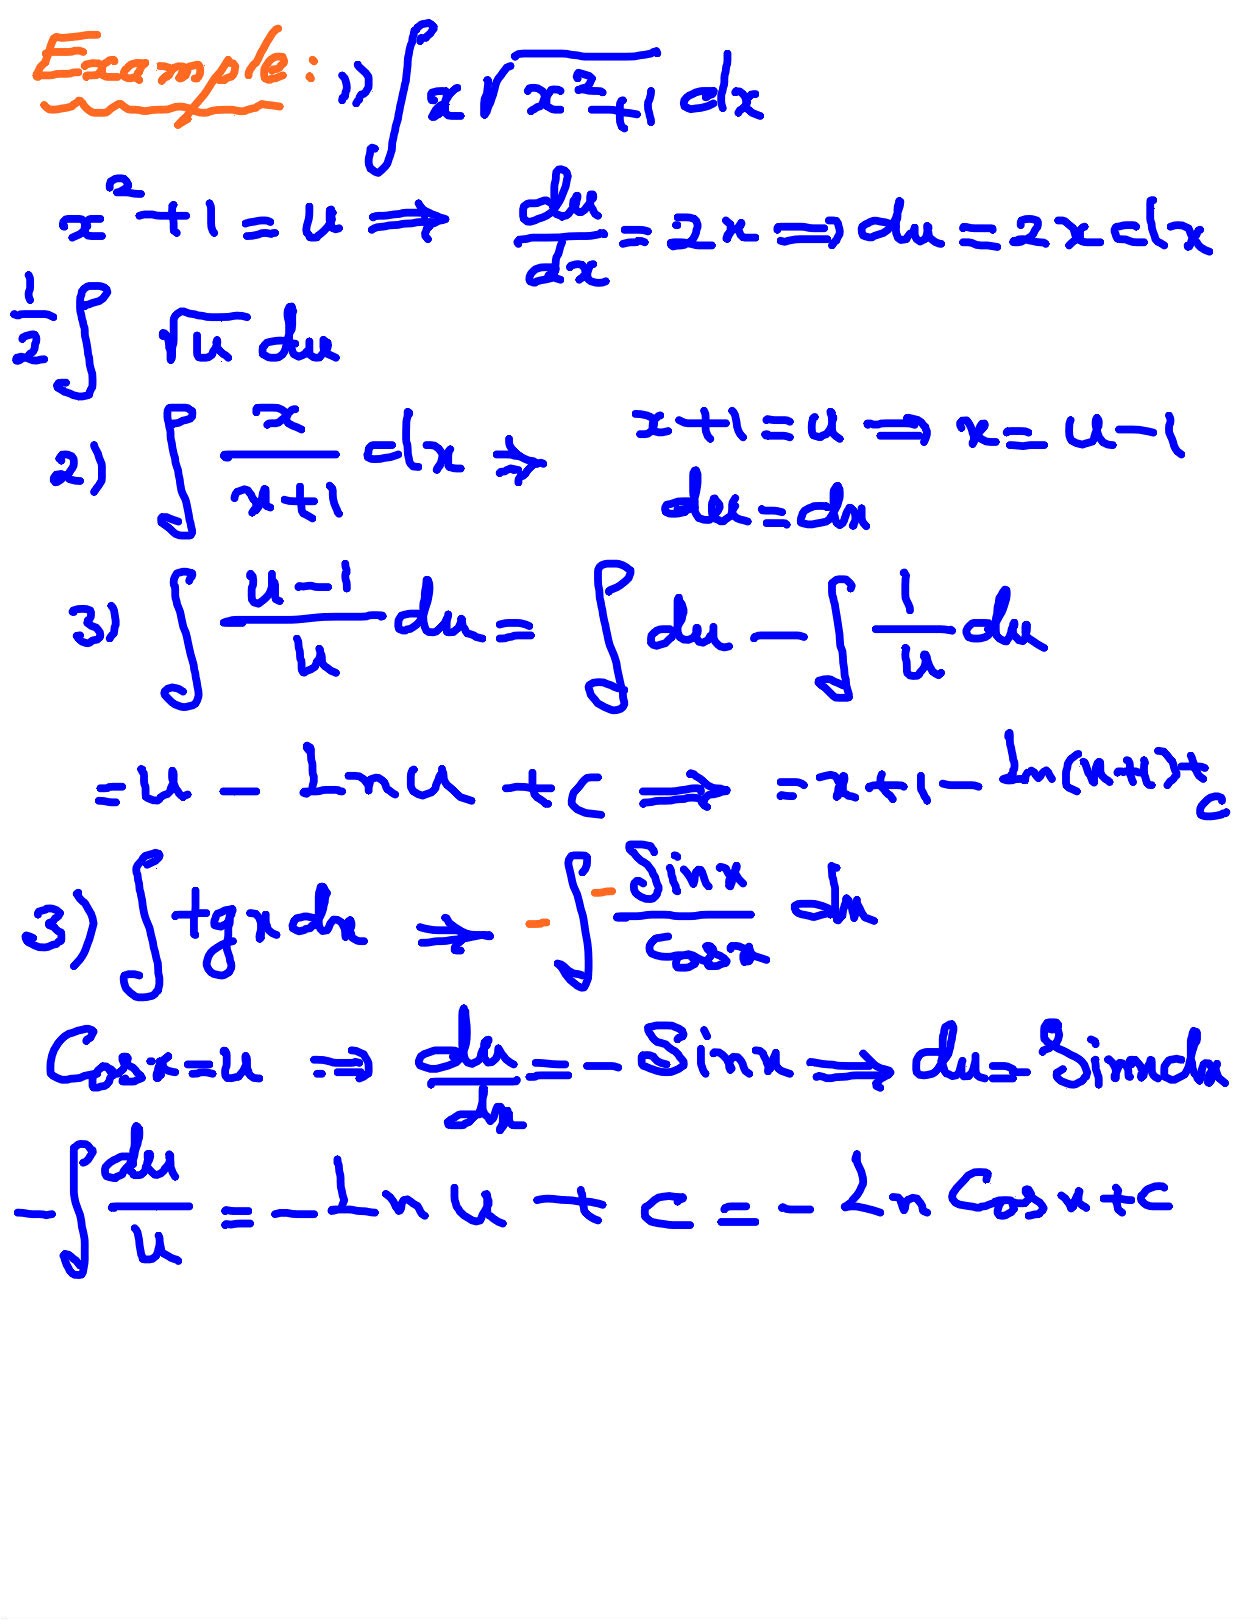 Example: 1) ∫ x √(x²+1) dx
x²+1 = u ⇒ du/dx = 2x ⇒ du = 2x dx
1/2 ∫ √u du
2) ∫ x/(x+1) dx ⇒ x+1 = u ⇒ x = u-1
du = dx
3) ∫ (u-1)/u du = ∫ du - ∫ 1/u du
= u - Ln u + c ⇒ = x+1 - Ln(x+1)+c
3) ∫ tgx dx ⇒ -∫ -Sinx/Cosx dx
Cosx = u ⇒ du/dx = -Sinx ⇒ du = -Sinx dx
-∫ du/u = -Ln u + c = -Ln Cosx + c